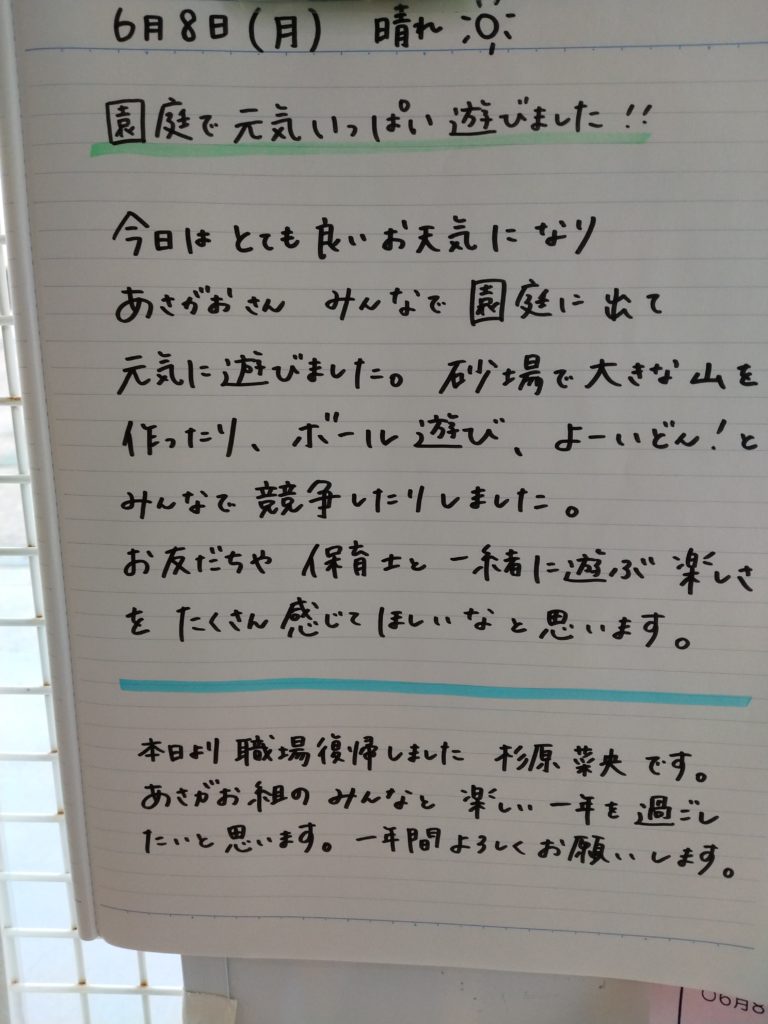 6月8日(月) 晴れ
園庭で元気いっぱい遊びました!!
今日はとても良いお天気になり
あさがおさん みんなで園庭に出て
元気に遊びました。砂場で大きな山を
作ったり、ボール遊び、よーいどん!と
みんなで競争したりしました。
お友だちや保育士と一緒に遊ぶ楽しさ
をたくさん感じてほしいなと思います。
本日より職場復帰しました 杉原菜央です。
あさがお組のみんなと楽しい一年を過ごし
たいと思います。一年間よろしくお願いします。
06月8